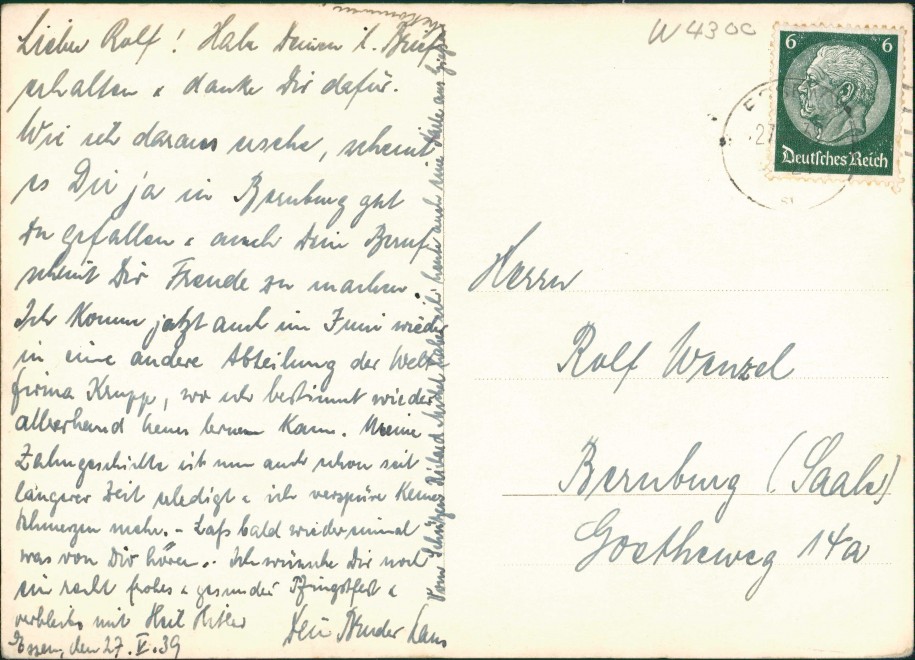 Lieber Rolf! Habe Deinen l. Brief
erhalten & danke Dir dafür.
Wie ich daraus ersehe, scheint
es Dir ja in Bernburg gut
zu gefallen & auch Dein Beruf
scheint Dir Freude zu machen.
Ich komme jetzt auch im Juni wieder
in eine andere Abteilung der Welt-
firma Krupp, wo ich bestimmt wieder
allerhand neues lernen kann. Meine
Zahngeschichte ist nun auch schon seit
längerer Zeit erledigt & ich verspüre keine
Schmerzen mehr. - Laß bald wieder einmal
was von Dir hören. - Ich wünsche Dir noch
ein recht frohes & gesundes Pfingstfest &
verbleibe mit Heil Hitler
Dein Bruder Hans
Essen, den 27. V. 39
Vom Schützen Richard habe ich heute auch eine Karte aus
bekommen
W 430C
6 6
Deutsches Reich
Herrn
Rolf Wenzel
Bernburg (Saale)
Goetheweg 14a